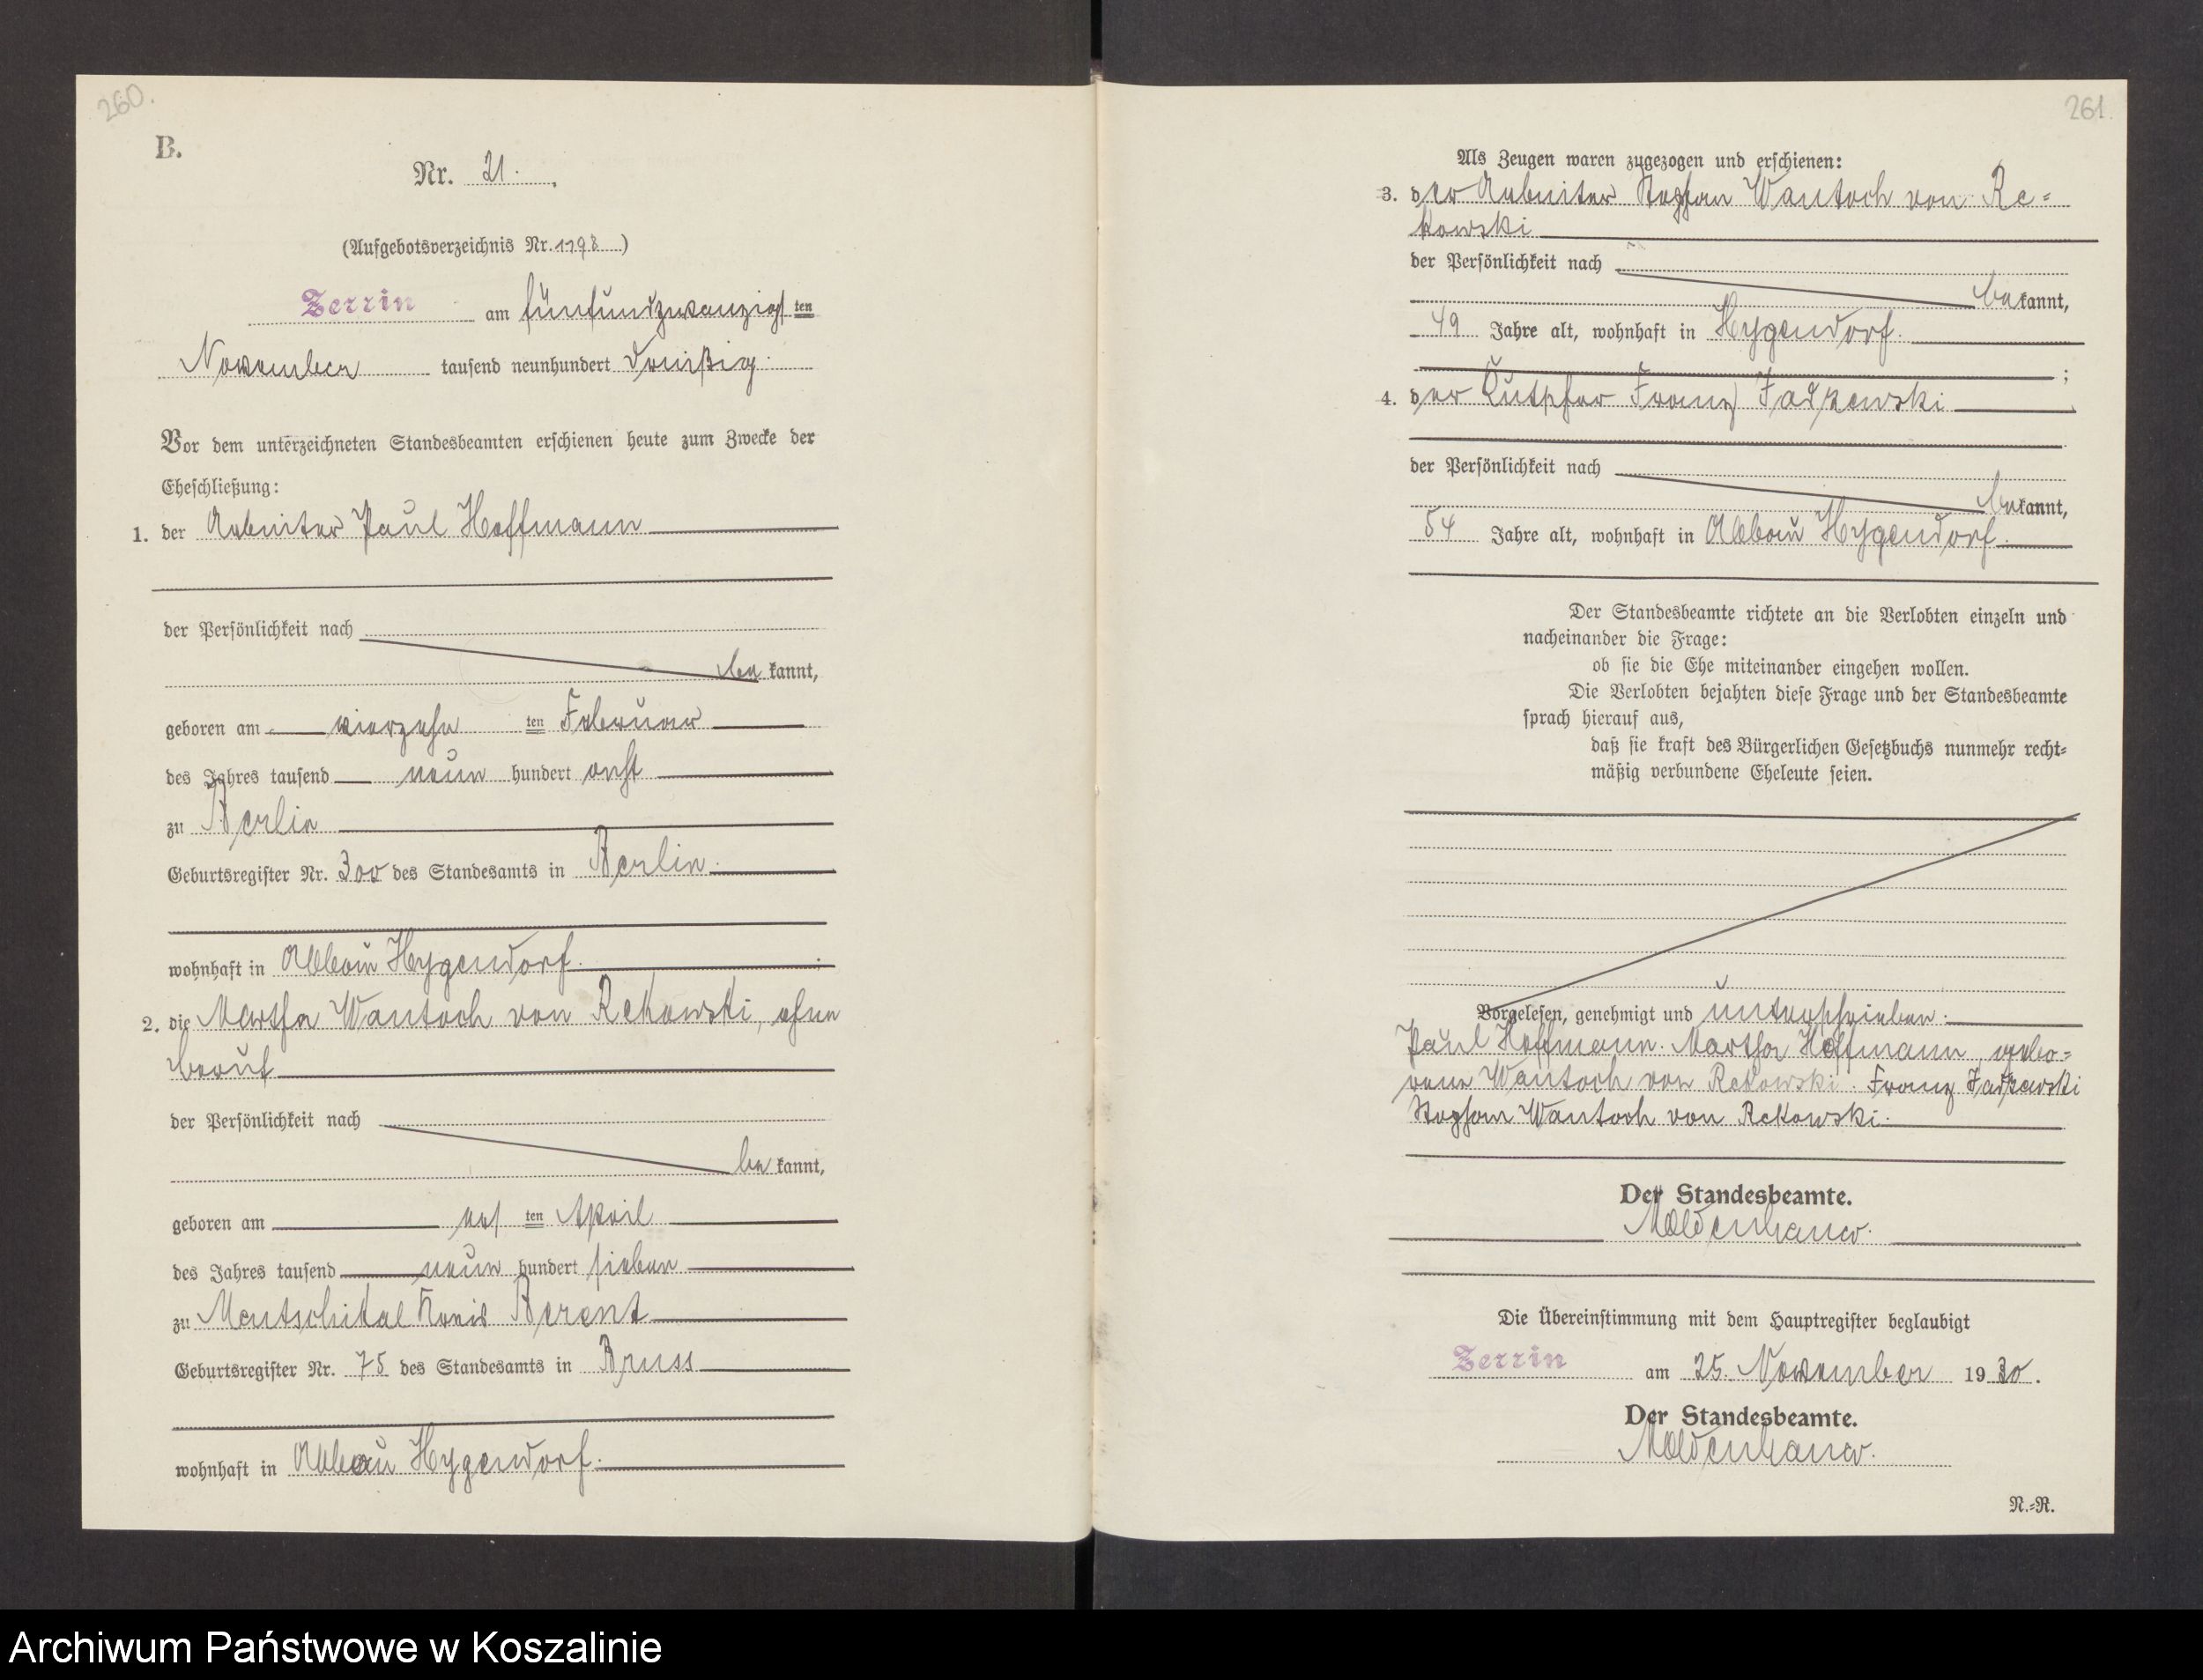 260.
B.
Nr. 21.
(Aufgebotsverzeichnis Nr. 1198)
Zerrin am fünfundzwanzigsten
November tausend neunhundert dreißig.
Vor dem unterzeichneten Standesbeamten erschienen heute zum Zwecke der
Eheschließung:
1. der Arbeiter Paul Hoffmann
der Persönlichkeit nach
bekannt,
geboren am vierzehnten Februar
des Jahres tausend neun hundert acht
zu Berlin
Geburtsregister Nr. 300 des Standesamts in Berlin.
wohnhaft in Abbau Hygendorf.
2. die Martha Wantoch von Rekowski, ohne
Beruf
der Persönlichkeit nach
bekannt,
geboren am ten April
des Jahres tausend neun hundert sieben
zu Mentschikal Kreis Berent
Geburtsregister Nr. 75 des Standesamts in Bruss
wohnhaft in Abbau Hygendorf.
261
Als Zeugen waren zugezogen und erschienen:
3. der Arbeiter Stephan Wantoch von Re=
kowski
der Persönlichkeit nach
bekannt,
49 Jahre alt, wohnhaft in Hygendorf.
;
4. der Franz
der Persönlichkeit nach
bekannt,
54 Jahre alt, wohnhaft in Abbau Hygendorf.
Der Standesbeamte richtete an die Verlobten einzeln und
nacheinander die Frage:
ob sie die Ehe miteinander eingehen wollen.
Die Verlobten bejahten diese Frage und der Standesbeamte
sprach hierauf aus,
daß sie kraft des Bürgerlichen Gesetzbuchs nunmehr recht=
mäßig verbundene Eheleute seien.
Vorgelesen, genehmigt und unterschrieben:
Paul Hoffmann. Martha Hoffmann gebo=
rene Wantoch von Rekowski. Franz
Stephan Wantoch von Rekowski.
Der Standesbeamte.
Moldenhauer.
Die Übereinstimmung mit dem Hauptregister beglaubigt
Zerrin am 25. November 1930.
Der Standesbeamte.
Moldenhauer.
N.=R.
Archiwum Państwowe w Koszalinie